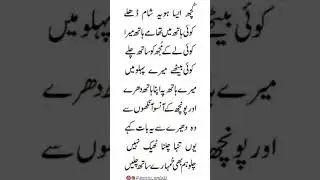 کچھ ایسا ہو یہ شام ڈھلے
کوئی ہاتھ میں تھامے ہاتھ میرا
کوئی لے کے مجھ کو ساتھ چلے
کوئی بیٹھے میرے پہلو میں
میرے ہاتھ پہ اپنا ہاتھ دھرے
اور پونچھ کے آنسو آنکھوں سے
وہ دھیرے سے یہ بات کہے
یوں تنہا چلنا ٹھیک نہیں
چلو ہم بھی تمہارے ساتھ چلیں